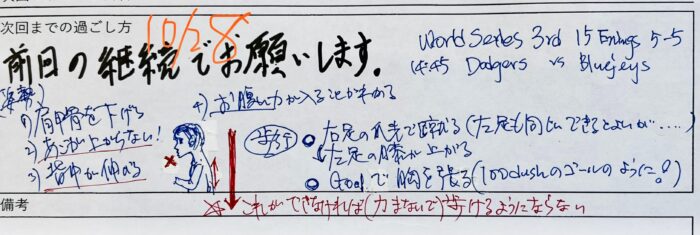 次回までの過ごし方
10/28
前回の継続でお願いします。
World Series 3rd 15 Innings 5-5
14:45 Dodgers vs Bluejeys
姿勢)
1) 肩甲骨を下げる
2) あごが上がらない!
3) 背中が伸びる
4) お腹に力が入ることが
歩行
右足の爪先で蹴れる(左足も同じくできるとよいが....)
左足の膝が上がる
Goalで胸を張る(100dashのゴールのように!)
これができなければ(力まないで)歩けるようにならない
備考